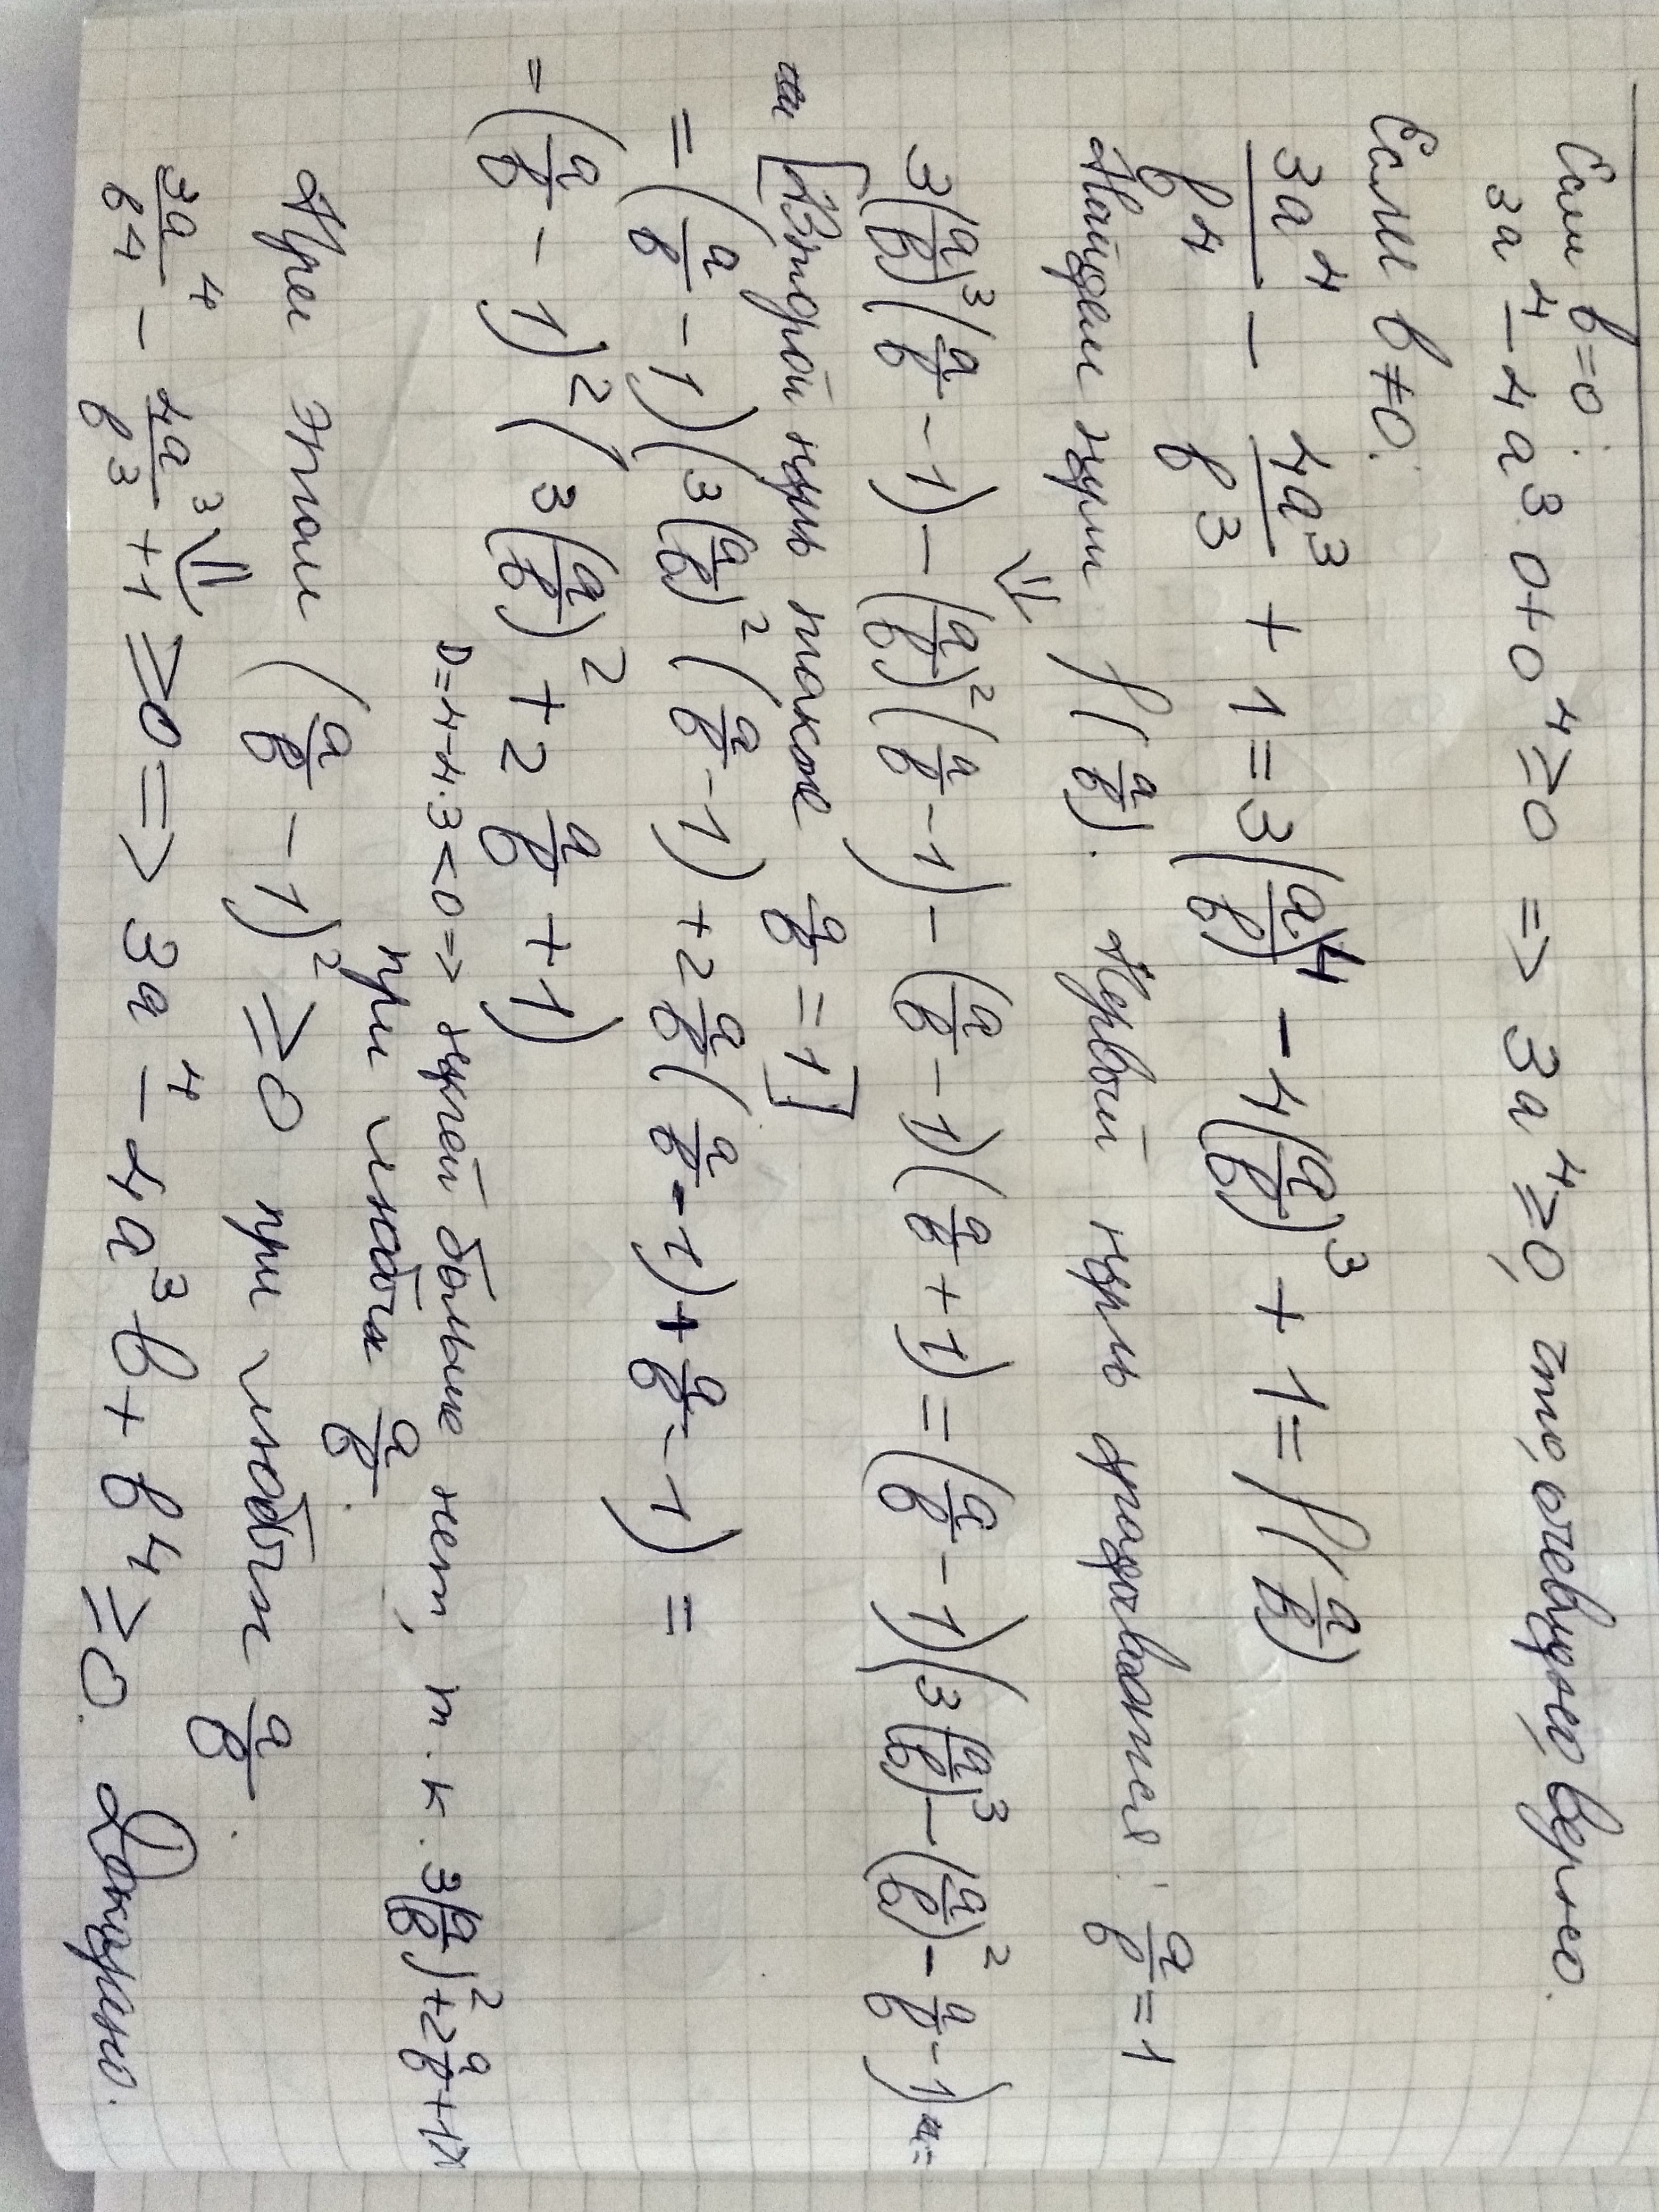 Если b=0:
3a⁴ - 4a³·0+0⁴ ≥ 0 => 3a⁴ ≥ 0, что, очевидно, верно.
Если b≠0:
3a⁴/b⁴ - 4a³/b³ + 1 = 3(a/b)⁴ - 4(a/b)³ + 1 = f(a/b)
Найдем нули f(a/b). Первый нуль угадывается: a/b = 1
⇓
3(a/b)³(a/b - 1) - (a/b)²(a/b - 1) - (a/b - 1)(a/b + 1) = (a/b - 1)(3(a/b)³ - (a/b)² - a/b - 1) =
[Второй нуль также a/b = 1]
= (a/b - 1)(3(a/b)²(a/b - 1) + 2a/b(a/b - 1) + a/b - 1) =
= (a/b - 1)²(3(a/b)² + 2a/b + 1)
D=4-4·3<0 => нулей больше нет, т.к. 3(a/b)²+2a/b+1>
при любых a/b.
При этом (a/b - 1)² ≥ 0 при любых a/b.
⇓
3a⁴/b⁴ - 4a³/b³ + 1 ≥ 0 => 3a⁴ - 4a³b + b⁴ ≥ 0. Доказано.